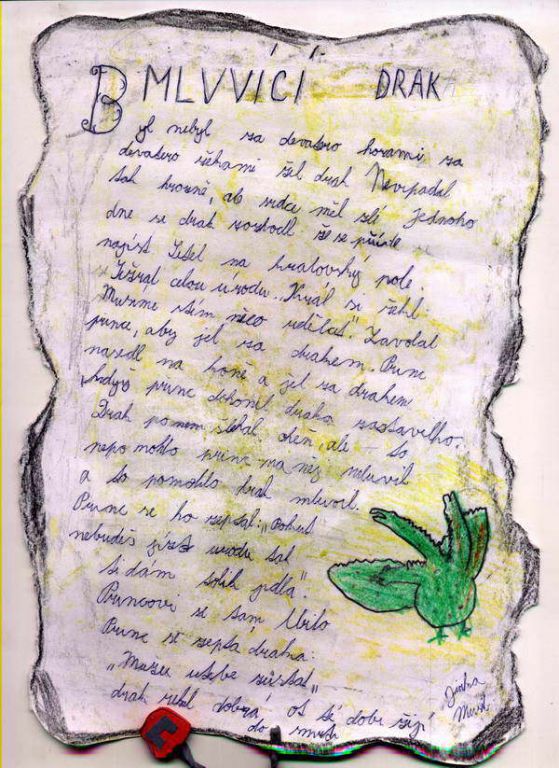 MLVVÍCÍ DRAK
Byl nebyl za devatero horami za
devatero řekami žil drak Nevipadal
tak hrozně, ab srdce měl zlé Jednoho
dne se drak rozhodl že se půjde
najíst Letěl na královský pole.
Sežral celou urodu. Král si řekl:
Musíme stím něco udělat". Zavolal
prince, aby jel za drakem. Princ
nasedl na koně a jel za drakem
když princ dohonil draka zastavil ho.
Drak po něm šlehal oheň, ale to
nepomohlo princ na něj mluvil
a to pomohlo drak mluvil.
Princ se ho zeptal: „Pokud
nebudeš jíst urodu tak
ti dám tolik jídla".
Princovi se tam líbilo
Princ se zeptá draka:
„Muzu utebe zůstat"
drak řekl dobrá, os té doby žijí
do smrti